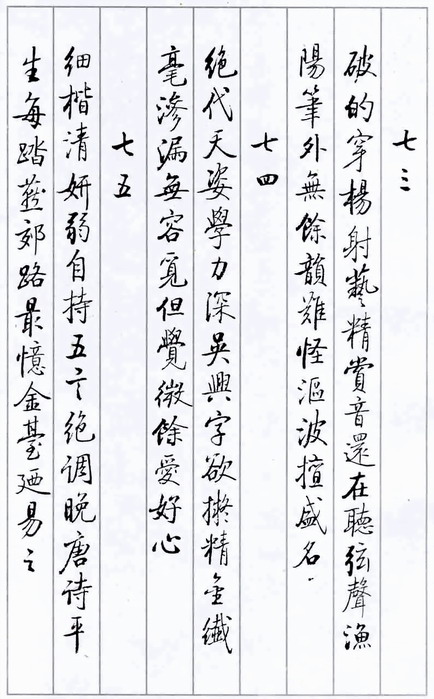 七三
破的穿楊射藝精賞音還在聽弦聲漁
陽筆外無餘韻難怪漚波擅盛名.
七四
絕代天姿學力深吳興字欲擬精金纖
毫滲漏無容覓但覺微餘愛好心
七五
细楷清妍弱自持五言绝调晚唐诗平
生每踏燕郊路最憶金臺廼易之